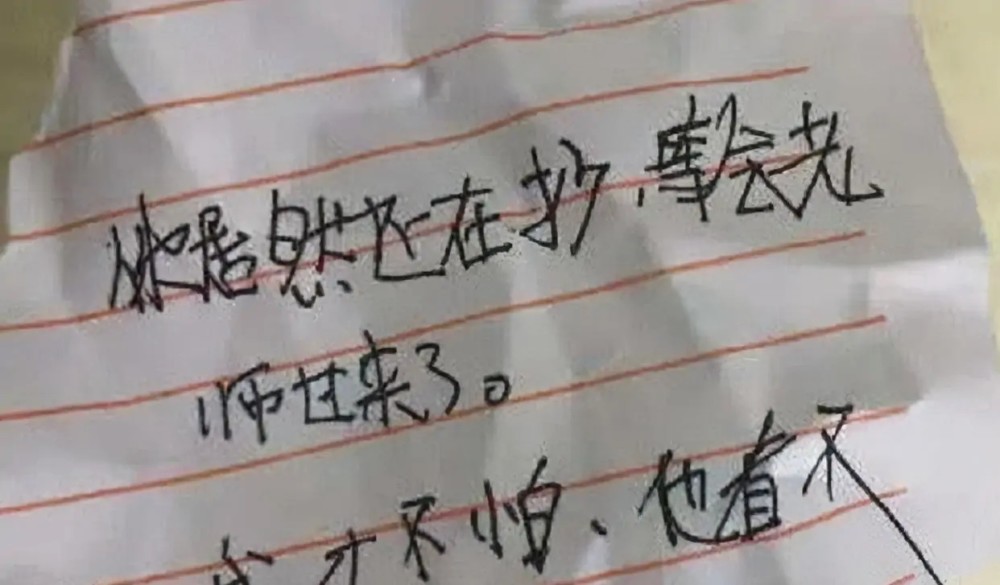 她居然还在抄，等会老
师过来了。
我才不怕、他看不